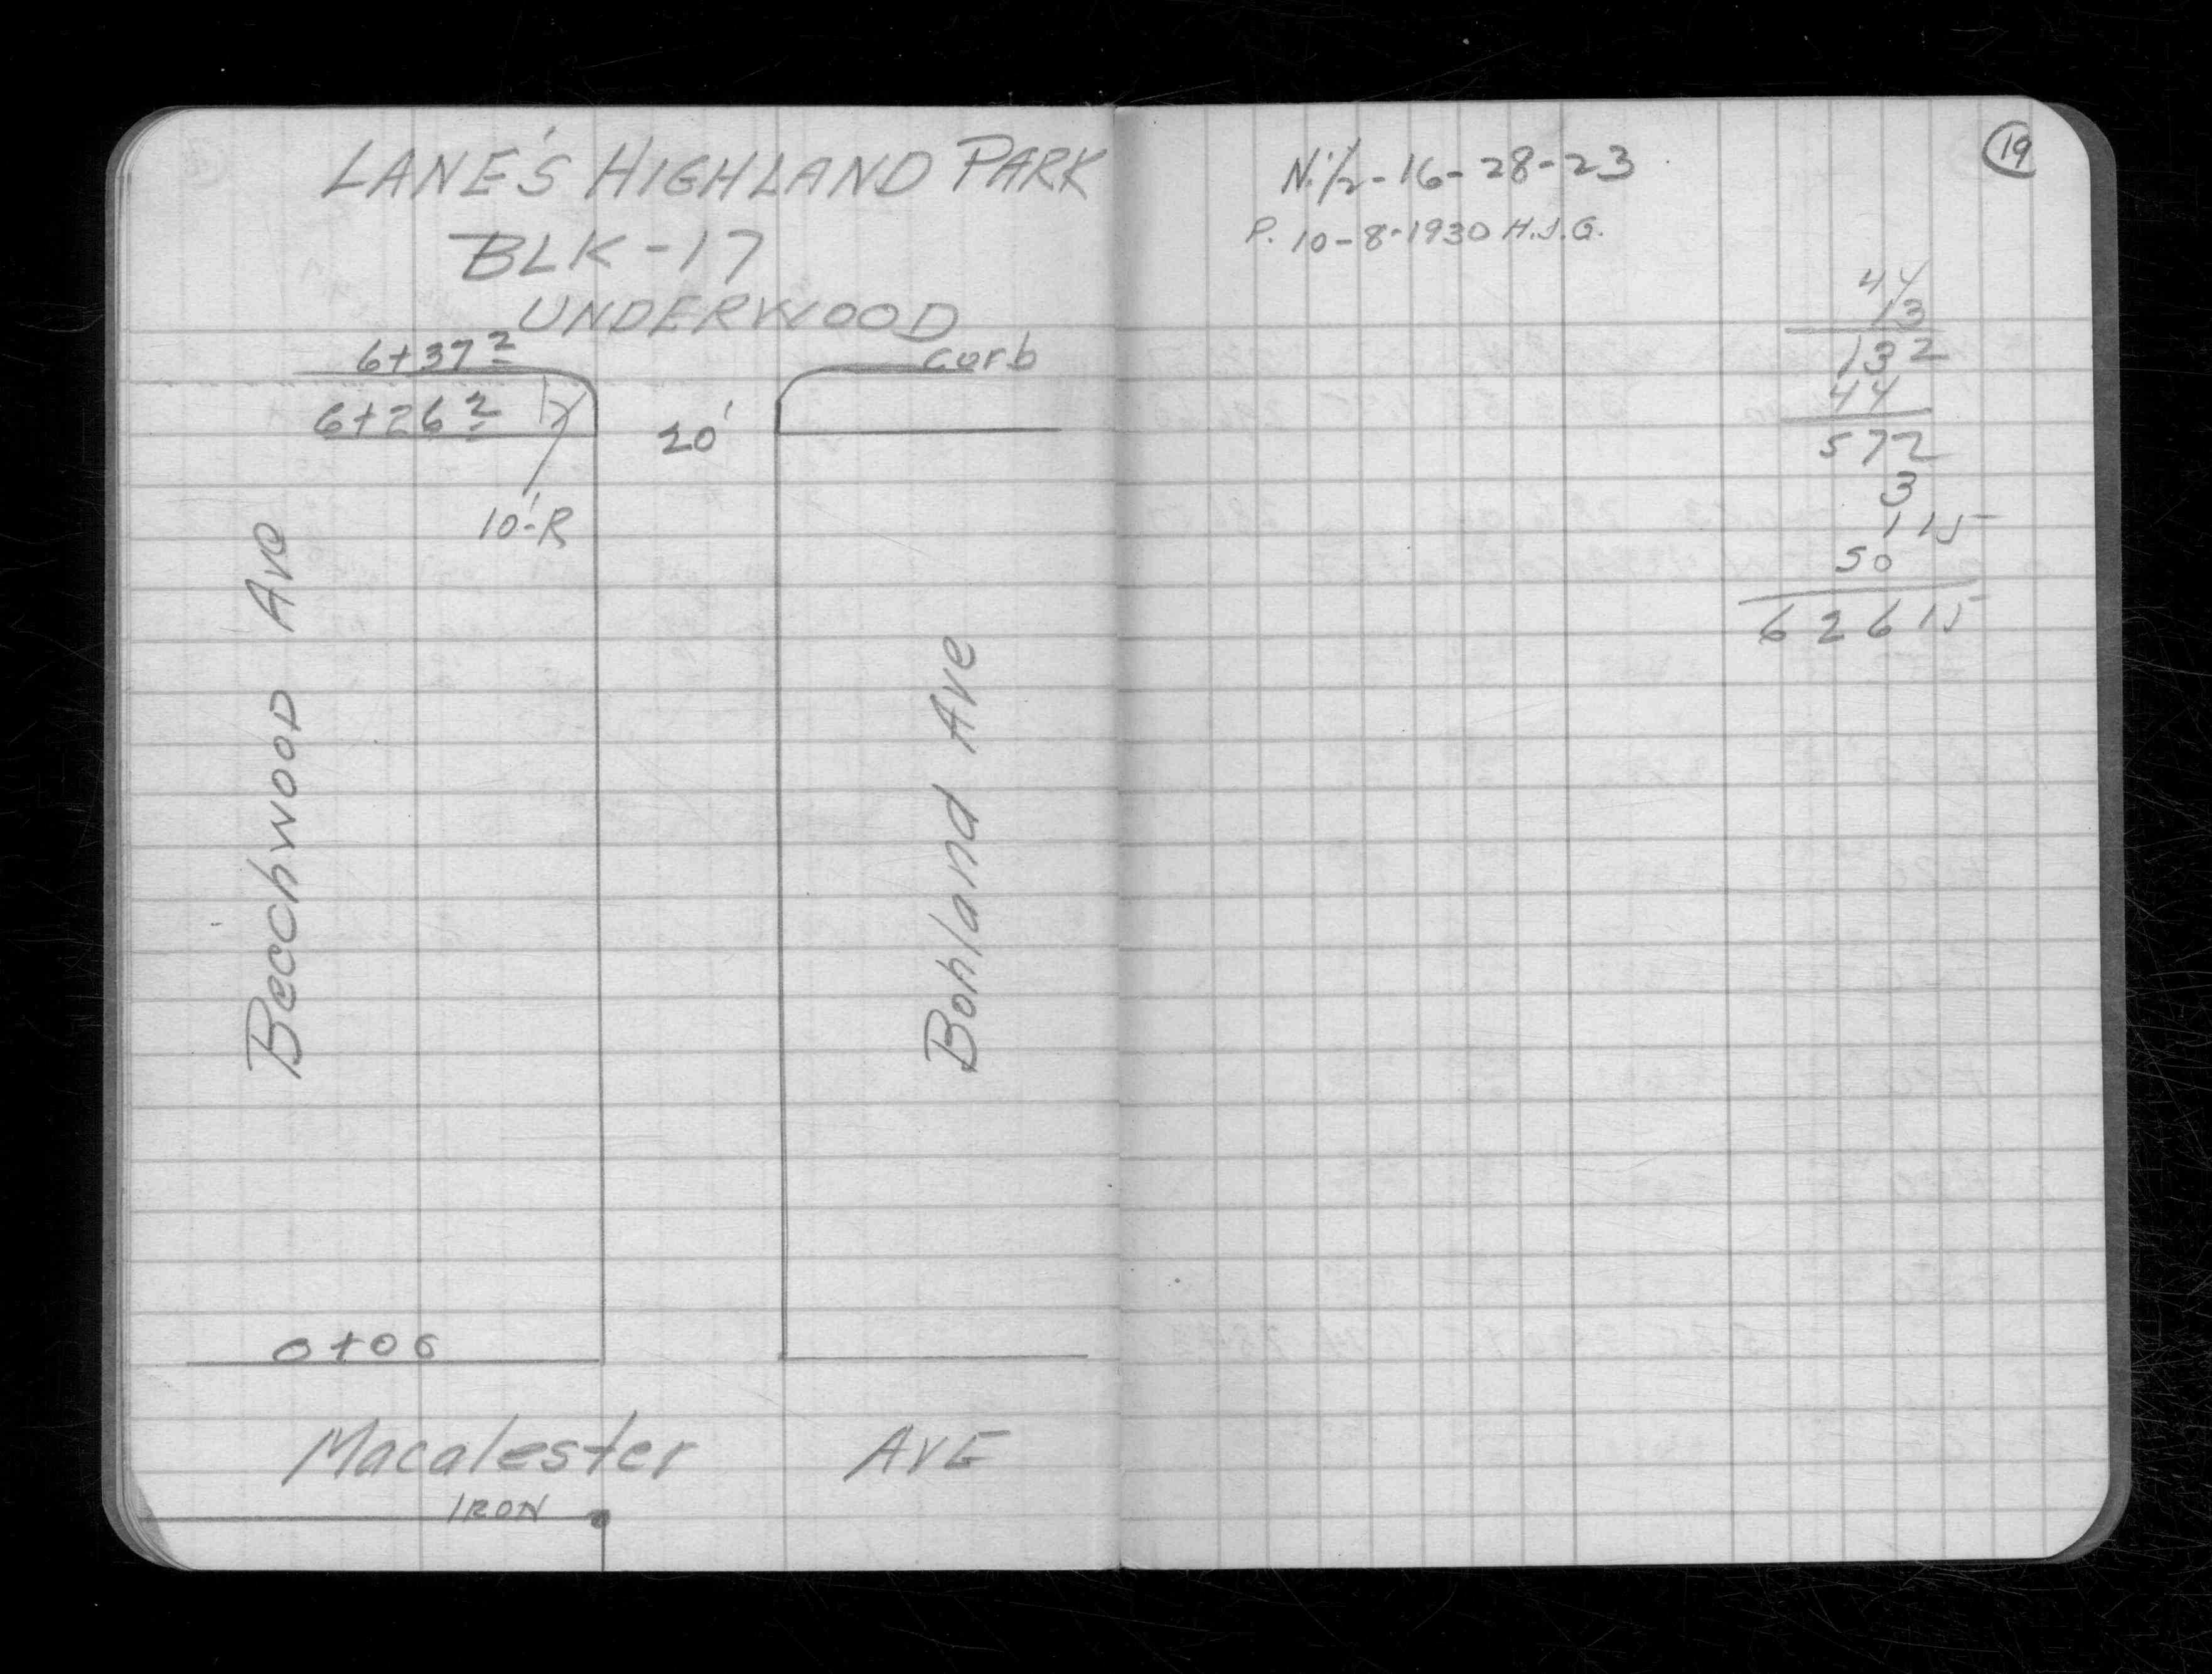 LANE'S HIGHLAND PARK
BLK-17
UNDERWOOD
6+37 2
curb
6+26 2
20'
10'-R
Beechwood Ave
Bohland Ave
0+06
Macalester AVE
IRON
19
N.1/2-16-28-23
P. 10-8-1930 H.J.G.
44
13
132
44
572
3
1 15
50
626 15